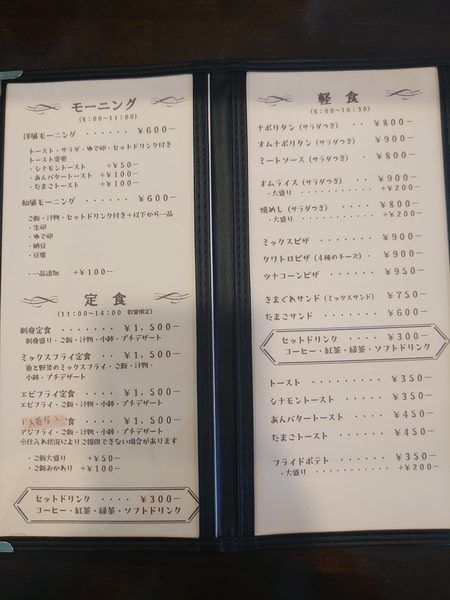 モーニング
(8:00~11:00)
洋風モーニング ・・・・・・ ¥600―
トースト・サラダ・ゆで卵・セットドリンク付き
トースト変更
・シナモントースト +¥50―
・あんバタートースト +¥100―
・たまごトースト +¥100―
和風モーニング ・・・・・・ ¥600―
ご飯・汁物・セットドリンク付き+以下から一品
・生卵
・ゆで卵
・納豆
・豆腐
・一品追加 +¥100―
定 食
(11:00~14:00 数量限定)
刺身定食 ・・・・・ ¥1,500―
刺身盛り・ご飯・汁物・小鉢・プチデザート
ミックスフライ定食 ・・・ ¥1,500―
魚と野菜のミックスフライ・ご飯・汁物・
小鉢・プチデザート
エビフライ定食 ・・・・ ¥1,500―
エビフライ・ご飯・汁物・小鉢・プチデザート
食 ・・・・ ¥1,500―
アジフライ・ご飯・汁物・小鉢・プチデザート
※仕入れ状況によりご提供できない場合があります
・ご飯大盛り +¥50―
・ご飯おかわり +¥100―
セットドリンク ・・・・ ¥300―
コーヒー・紅茶・緑茶・ソフトドリンク
軽 食
(8:00~16:30)
ナポリタン(サラダつき) ・・ ¥800―
オムナポリタン(サラダつき) ・・ ¥900―
ミートソース(サラダつき) ・・ ¥800―
オムライス(サラダつき) ・・ ¥900―
・大盛り ・・・・・・・・ +¥200―
焼めし(サラダつき) ・・・・ ¥800―
・大盛り ・・・・・・・・ +¥200―
ミックスピザ ・・・・ ¥900―
クワトロピザ(4種のチーズ)・ ¥900―
ツナコーンピザ ・・・ ¥950―
きまぐれサンド(ミックスサンド) ¥750―
たまごサンド ・・・・ ¥600―
セットドリンク ・・・・ ¥300―
コーヒー・紅茶・緑茶・ソフトドリンク
トースト ・・・・・・ ¥350―
シナモントースト ・・・ ¥350―
あんバタートースト ・・ ¥450―
たまごトースト ・・・ ¥450―
フライドポテト ・・・・ ¥350―
・大盛り ・・・・・・・ +¥200―